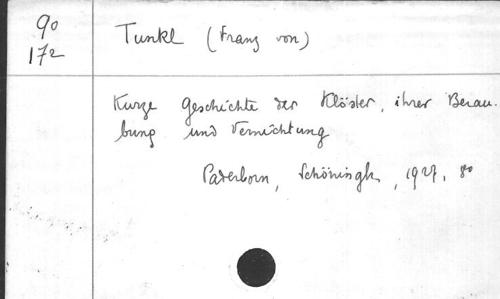 90
172
Tunkl (Franz von)
Kurze Geschichte der Klöster, ihrer Berau-
bung und Vernichtung
Paderborn, Schöningh, 1927, 8o